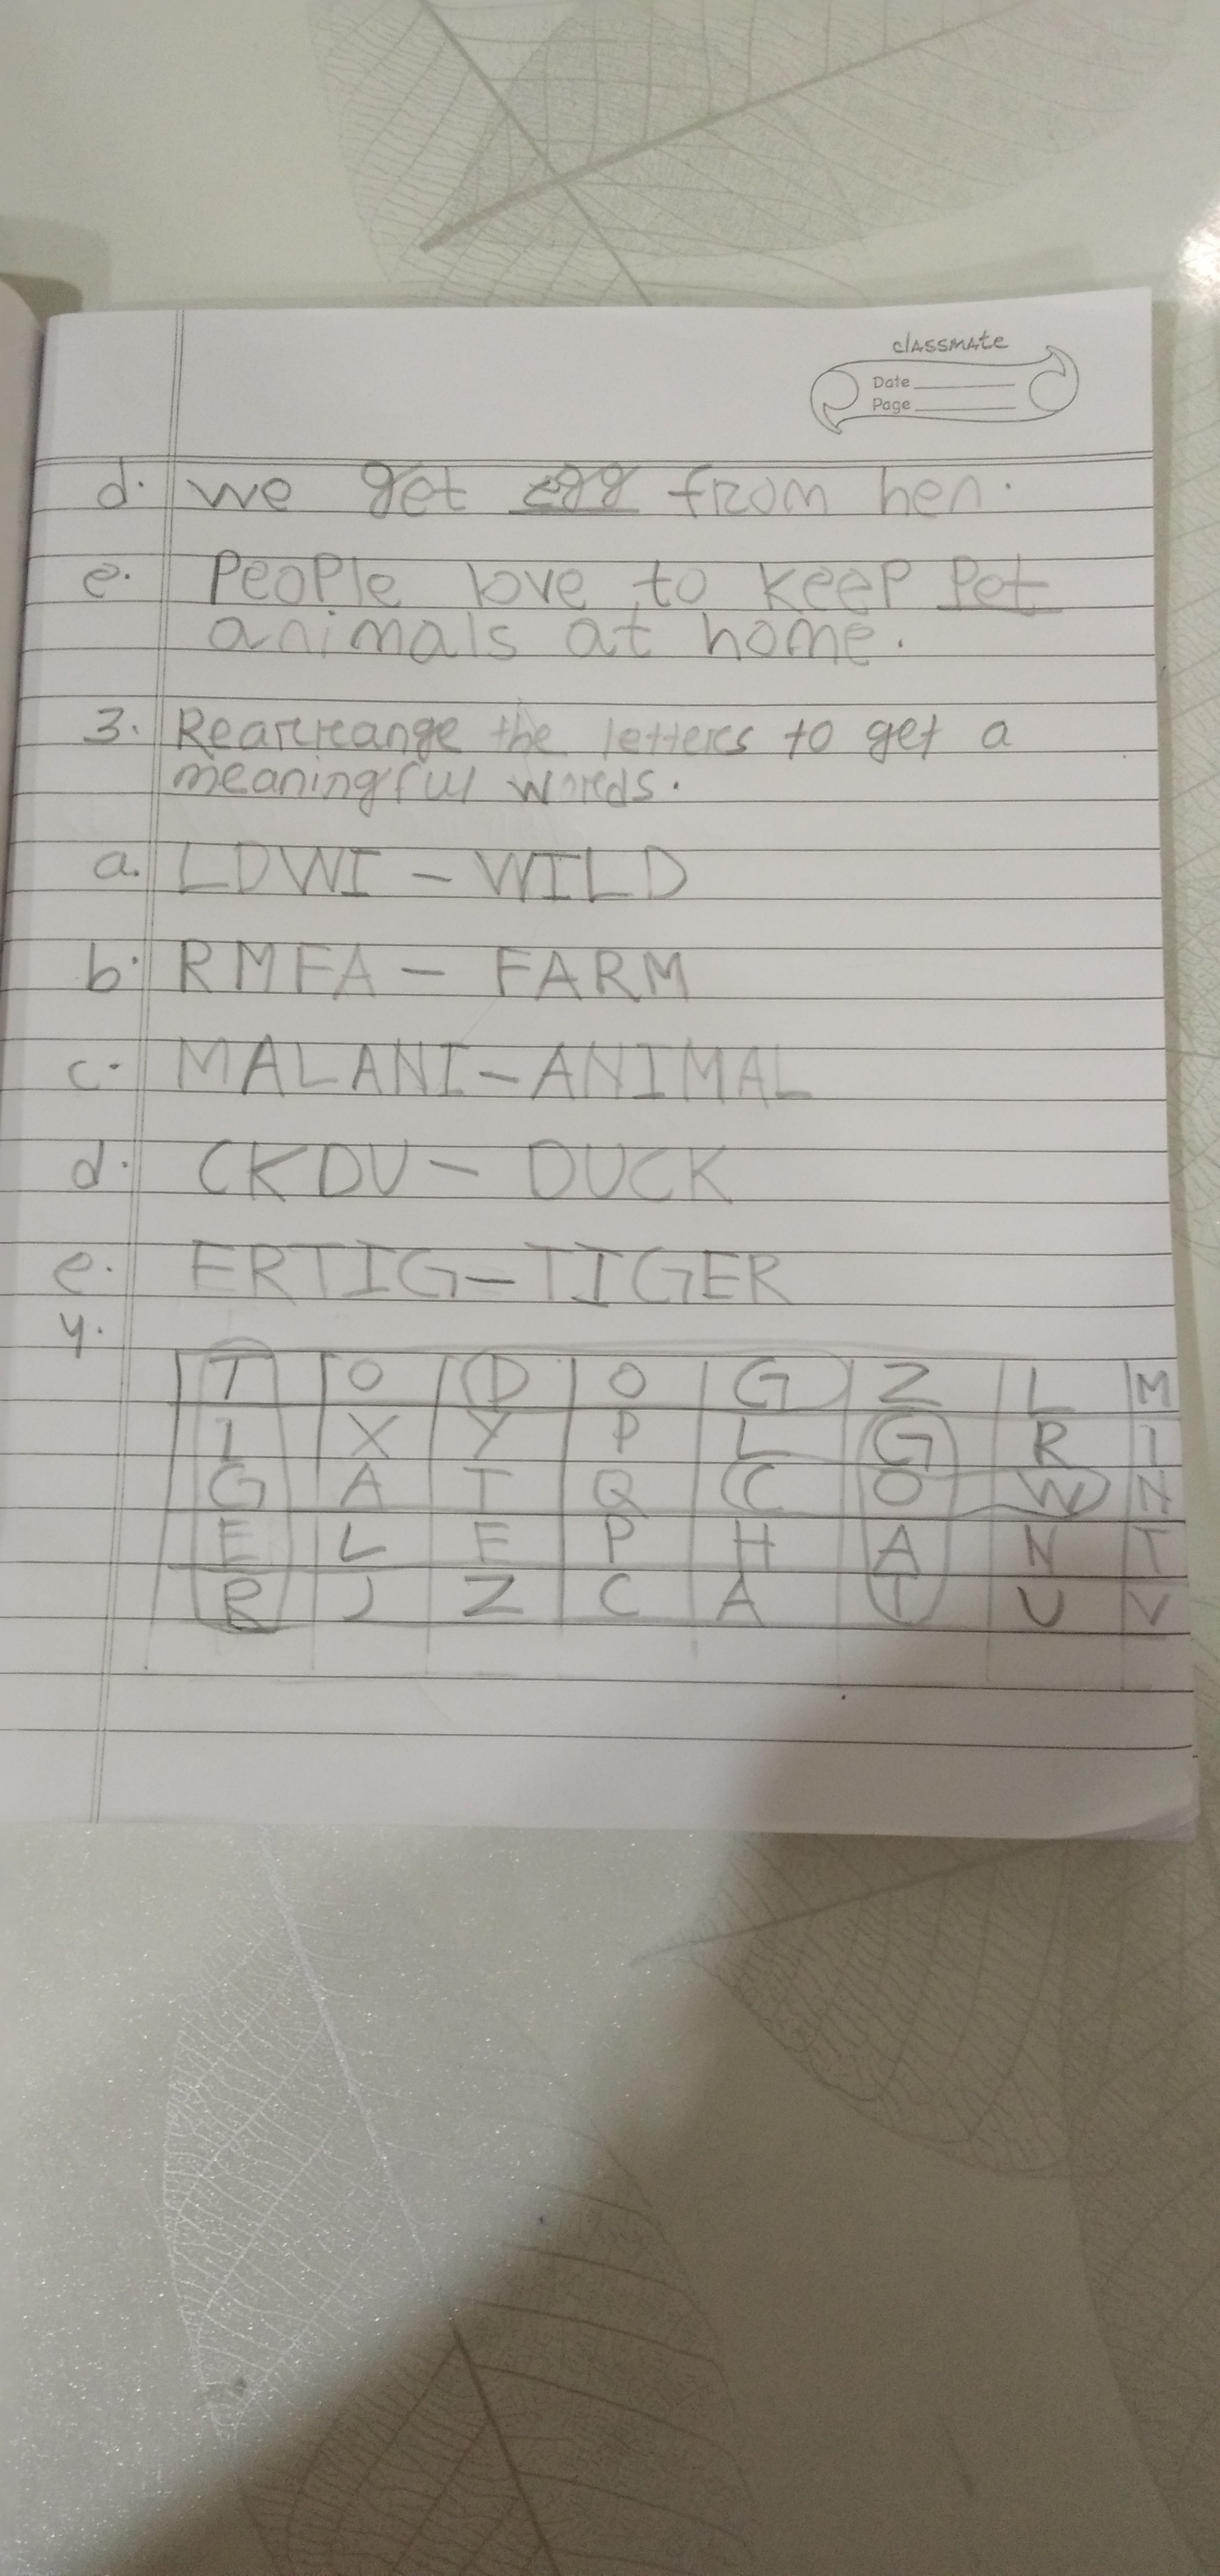 classmate
Date
Page
d. we get egg from hen.
e. People love to keep Pet
animals at home.
3. Rearrange the letters to get a
meaningful words.
a. LDWI - WILD
b. RMFA - FARM
c. MALANI - ANIMAL
d. CKDU - DUCK
e. ERTIG - TIGER
4.
T O D O G Z L M
I X Y P L G R I
G A T Q C O W N
E L E P H A N T
R J Z C A T U V